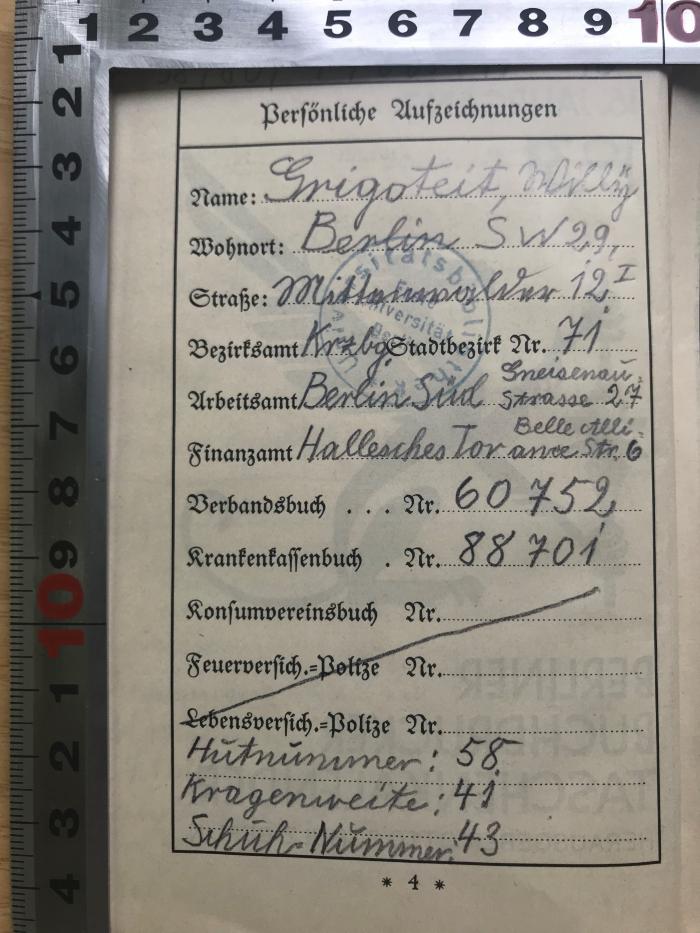 1 2 3 4 5 6 7 8 9 10
1 2 3 4 5 6 7 8 9 10 1 2 3 4
Persönliche Aufzeichnungen
Name: Grigoteit, Willy
Wohnort: Berlin SW 29,
Straße: Mittenwalder 12, I
Bezirksamt Krzbg Stadtbezirk Nr. 71
Arbeitsamt Berlin Süd Gneisenau-
Strasse 27
Finanzamt Hallesches Tor Belle Alli-
ance Str. 6
Verbandsbuch . . . Nr. 60 752
Krankenkassenbuch . Nr. 88 701
Konsumvereinsbuch Nr.
Feuerversich.=Polize Nr.
Lebensversich.=Polize Nr.
Hutnummer: 58
Kragenweite: 41
Schuh-Nummer: 43
* 4 *
BERLINER